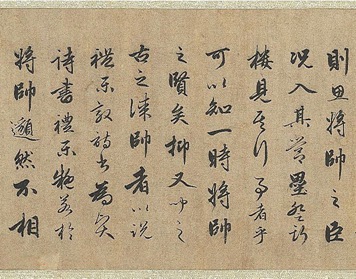 則思將帥之臣
況入其營壘登
樓見其行事者乎
可以知一時將帥
之賢矣抑又聞之
古之謀帥者以說
禮樂敦詩書為
詩書禮樂雖若於
將帥邈然不相